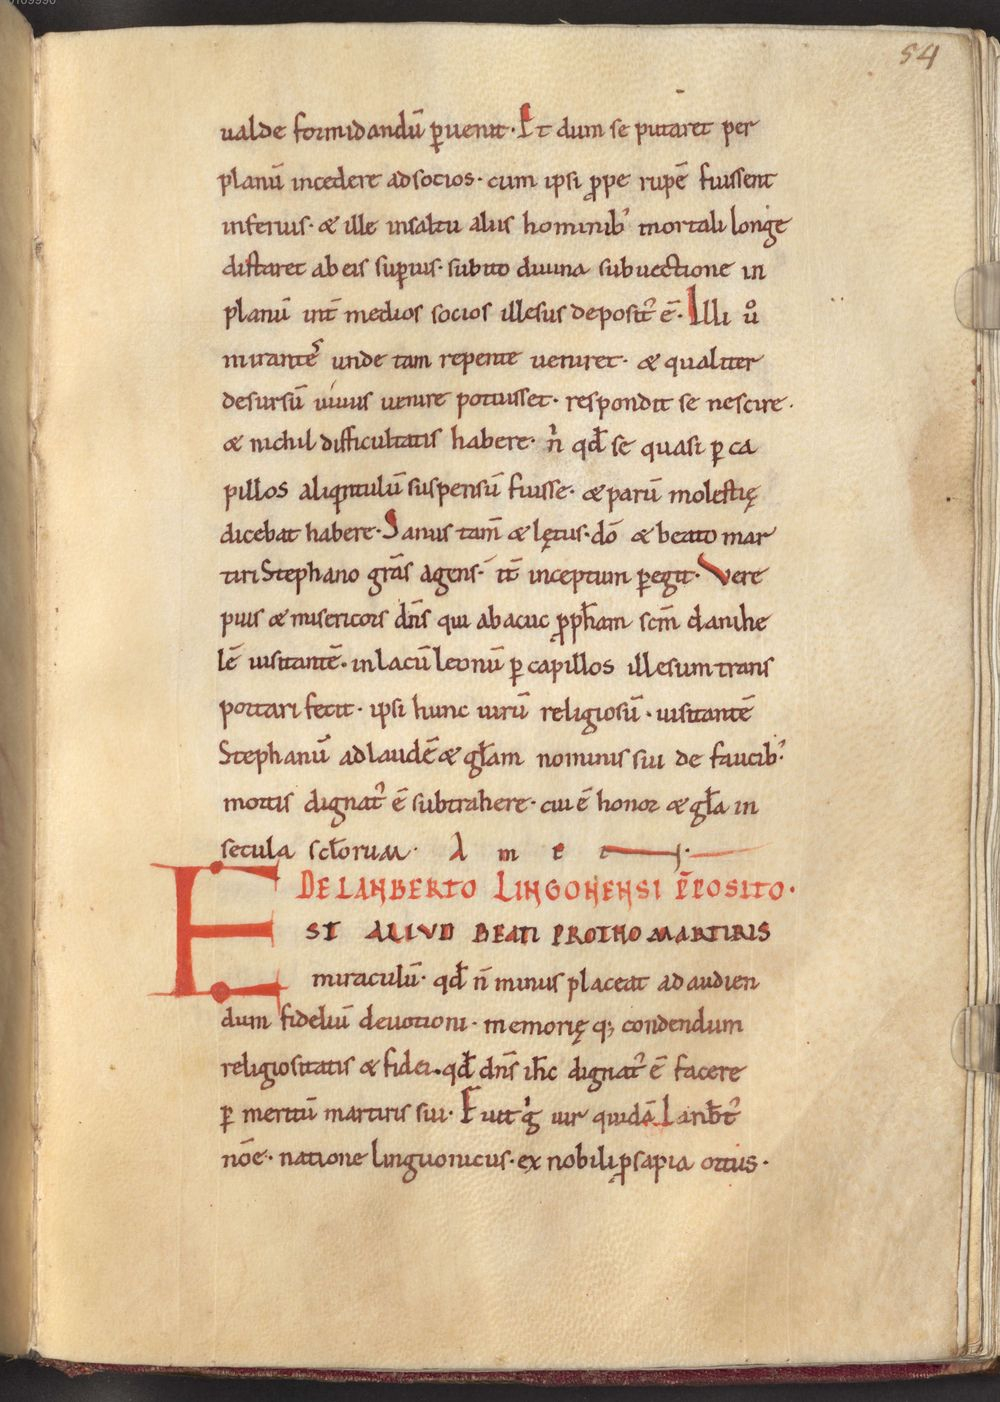 54
ualde formidandū ꝑuenit· Et dum se putaret per
planū incedere ad socios· cum ipsi ꝓpe rupē fuissent
inferius· & ille in saltu alus hominib᾽ mortali longe
distaret ab eis suꝑius· subito diuina subuectione in
planū int̄ medios socios illesus deposit᾽ ē· Illi ů
mirantes unde tam repente ueniret· & qualiter
desursū uiuus uenire potuisset· respondit se nescire·
& nichil difficultatis habere· n̓ qđ se quasi ꝑ ca
pillos aliqntulū suspensū fuisse· & parū molestię
dicebat habere· Sanus tam̄ & lętus· dō & beato mar
tiri Stephano grās agens· it̄ inceptum ꝑegit· Vere
pius & misericors dn̄s qui abacuc ꝓpħam scm̄ danihe
lē uisitantē· in lacū leonū ꝑ capillos illesum trans
portari fecit· ipsi hunc uirū religiosū· uisitantē
Stephanū ad laudē & gł̄am nominis sui de faucib᾽
mortis dignat᾽ ē subtrahere· cui ē honor & gł̄a in
secula scł̄orum· A m e n·
DE LANBERTO LINGONENSI P̄POSITO·
EST ALIVD BEATI PROTHOMARTIRIS
miraculū· qđ n̄ minus placeat ad audien
dum fidelium deuotioni· memorię q; condendum
religiositatis & fidei· qđ dn̄s iħc dignat᾽ ē facere
ꝑ meritū martiris sui· Fuit g̓ uir quidā Lanb̄t᾽
nōe· natione linguonicus· ex nobili ꝓsapia ortus·